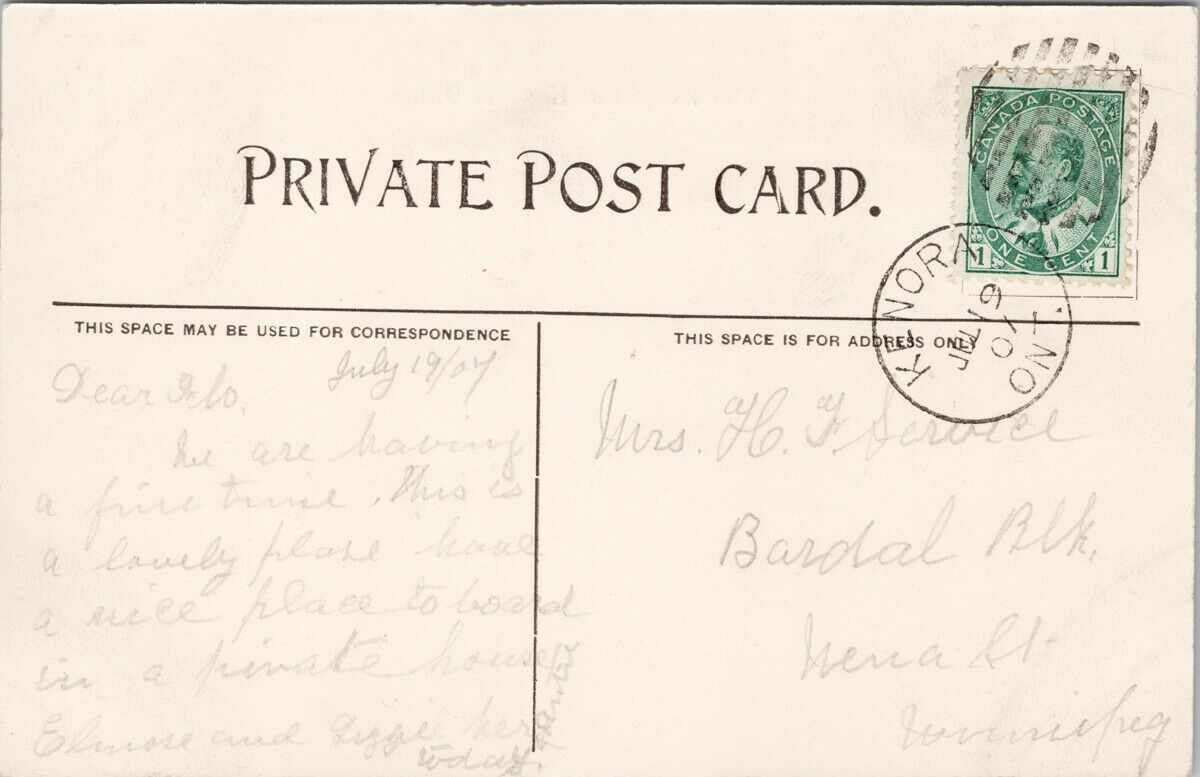 PRIVATE POST CARD.
CANADA POSTAGE
ONE CENT
1 1
KENORA
JUL 19
07
ONT.
THIS SPACE MAY BE USED FOR CORRESPONDENCE
THIS SPACE IS FOR ADDRESS ONLY
July 19/07
Dear Flo.
We are having
a fine time. This is
a lovely place have
a nice place to board
in a private house
Elmose and Lizzie here
today.
Mrs. H. F Service
Bardal Blk.
Nena St
Winnipeg